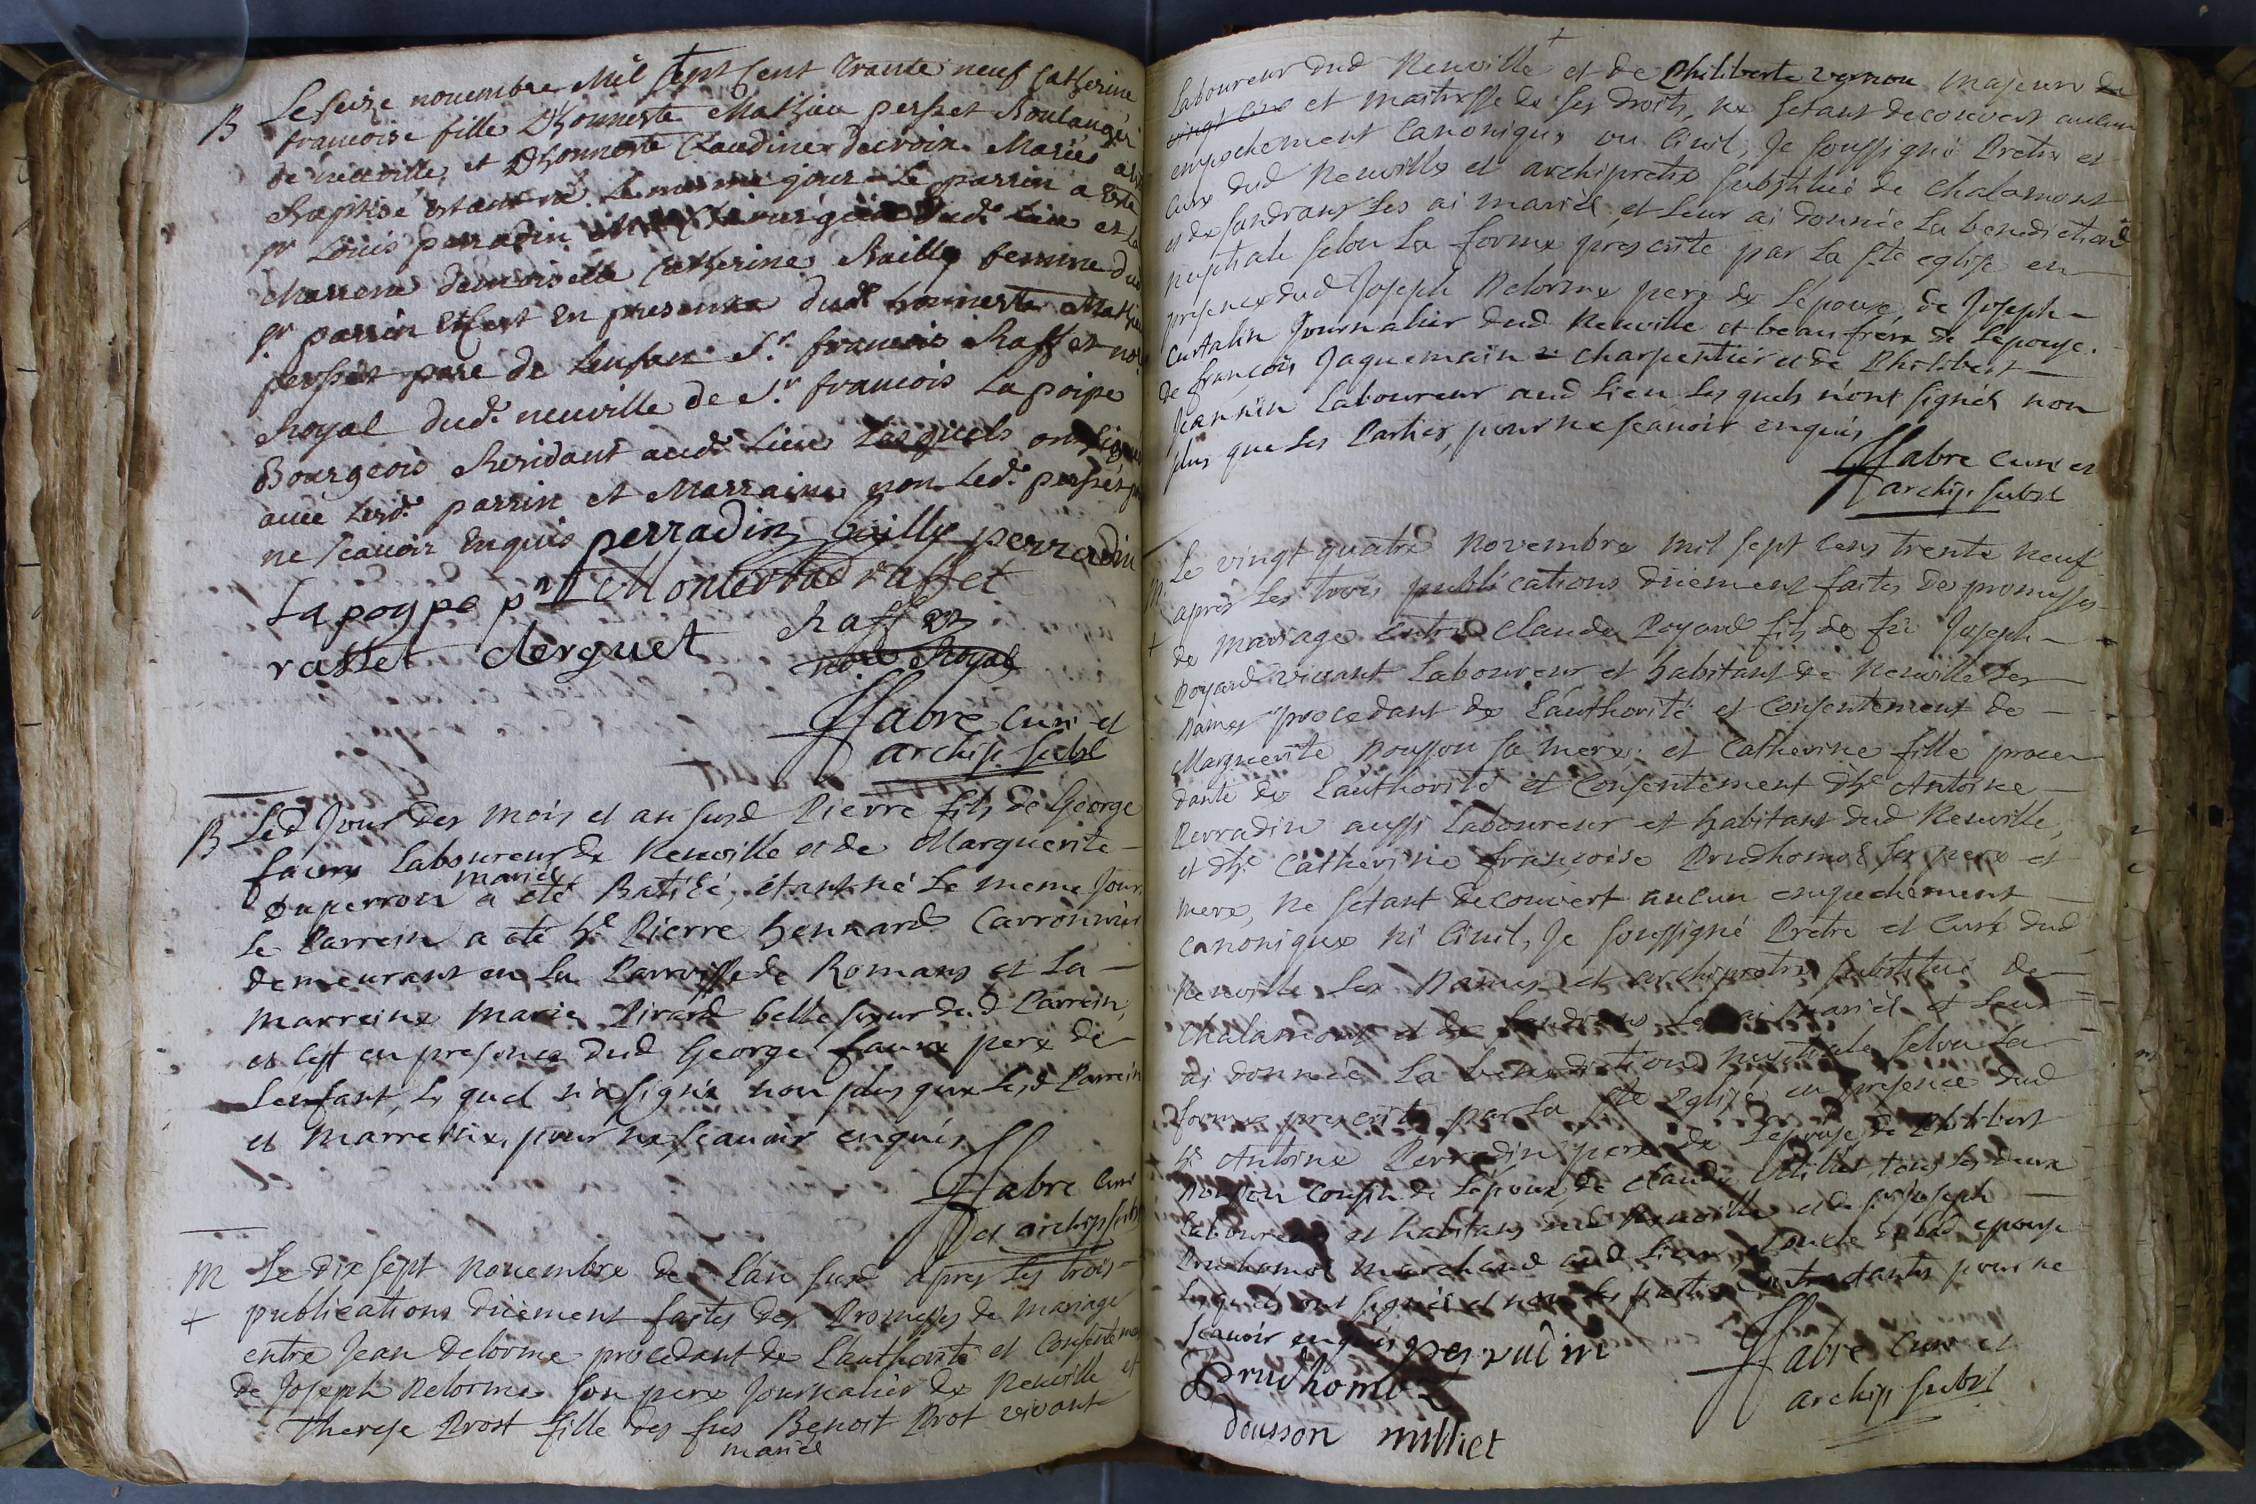 B
Le seize novembre Mil sept Cent trante neuf Catherine
francoise fille D'honneste Mathieu persset Boulanger
de neuville, et D'honneste Claudine decroix Mariés a esté
Baptisé estant né le mesme jour le parrin a Esté
sr Louis perradin Me Chirurgien dudt lieu et la
Marrene demoiselle Catherine Bailly femme dud
sr parrin Et c'est En presence dudt honneste Mathieu
persset pere de Lenfan Sr francois Raffet nore
Royal dudt neuville de Sr francois Lapoipe
Bourgeois Residant audt Lieu Lesquels ont signé
avec lesdt parrin et Marraine non ledt persset pr
ne scavoir Enquis perradin bailly perradin
Lapoype pnt Monterbad raffet
raffet clerguet Raffet
nore Royal
ffabre curé et
archip. subst
B
Led Jour des mois et an susd Pierre fils de George
faure Laboureur de Neuville et de Marguerite
Duperron mariés a eté Batisé, étant né Le meme Jour
Le Parrein a eté ht Pierre henrard Carronnier
demeurant en La Parroisse de Romans et La
Marreine Marie Pirard belle soeur dud Parrein,
et c'est en presence dud George faure pere de
Lenfant, Lequel n'a signé non plus que Lesd Parrein
et Marreine, pour ne scavoir enquis
ffabre curé
et archip subst
M
+
Le dix sept Novembre de L'an susd apres Les trois
publications düement faites des Promesses de mariage
entre Jean Delorme procedant de L'authorité et Consentement
de Joseph Delorme son pere Journalier de Neuville et
Therese Prost fille des fus Benoit Prot vivant
mariés
+
Laboureur dud Neuville et de Philiberte vernou majeure de
vingt cinq et maitresse de ses droits, ne setant decouvert aucun
empechement Canonique ou Civil, Je soussigné Pretre et
curé dud Neuville et archipretre substitué de Chalamont
et de sandrans Les ai mariés et Leur ai donnée La benediction
nuptiale selon La forme prescrite par La ste eglise en
presence dud Joseph Delorme pere de Lepoux, de Joseph
Curtalin Journalier dud Neuville et beau frere de Lepouse.
de francois Jaquemain charpentier et de Philibert
Jeannin Laboureur aud Lieu Lesquels n'ont signés non
plus que Les Parties, pour ne scavoir enquis
ffabre curé et
archip. subst
M
+
Le vingt quatre Novembre mil sept cens trente neuf
apres Les trois publications düement faites des promesses
de mariage entre Claude Poyard fils de fü Joseph
Poyard vivant Laboureur et habitant de Neuville Les
Dames procedant de L'authorité et Consentement de
Marguerite Dousson sa mere; et Catherine fille proce
dante de L'authorité et Consentement dht Antoine
Perradin aussi Laboureur et habitant dud Neuville,
et dht Catherine françoise Prudhomos ses pere et
mere, ne setant decouvert aucun empechement
canonique ni Civil, Je soussigné Pretre et Curé dud
Neuville Les Dames et archipretre substitué de
Chalamont et de sandrans Les ai mariés et Leur
ai donnée La benediction nuptiale selon La
forme prescrite par La ste eglise en presence dud
ht Antoine Perradin pere de Lepouse, de Philibert
Dousson cousin de Lepoux, de Claude Milliet tous Les deux
Laboureurs et habitans dud Neuville et de sr Joseph
Prudhomos marchand aud Lieu et oncle de lad epouse
Lesquels ont signés et non Les parties contractantes pour ne
scavoir enquis perradin
Prudhomoz
ffabre curé et
archip subst
dousson milliet